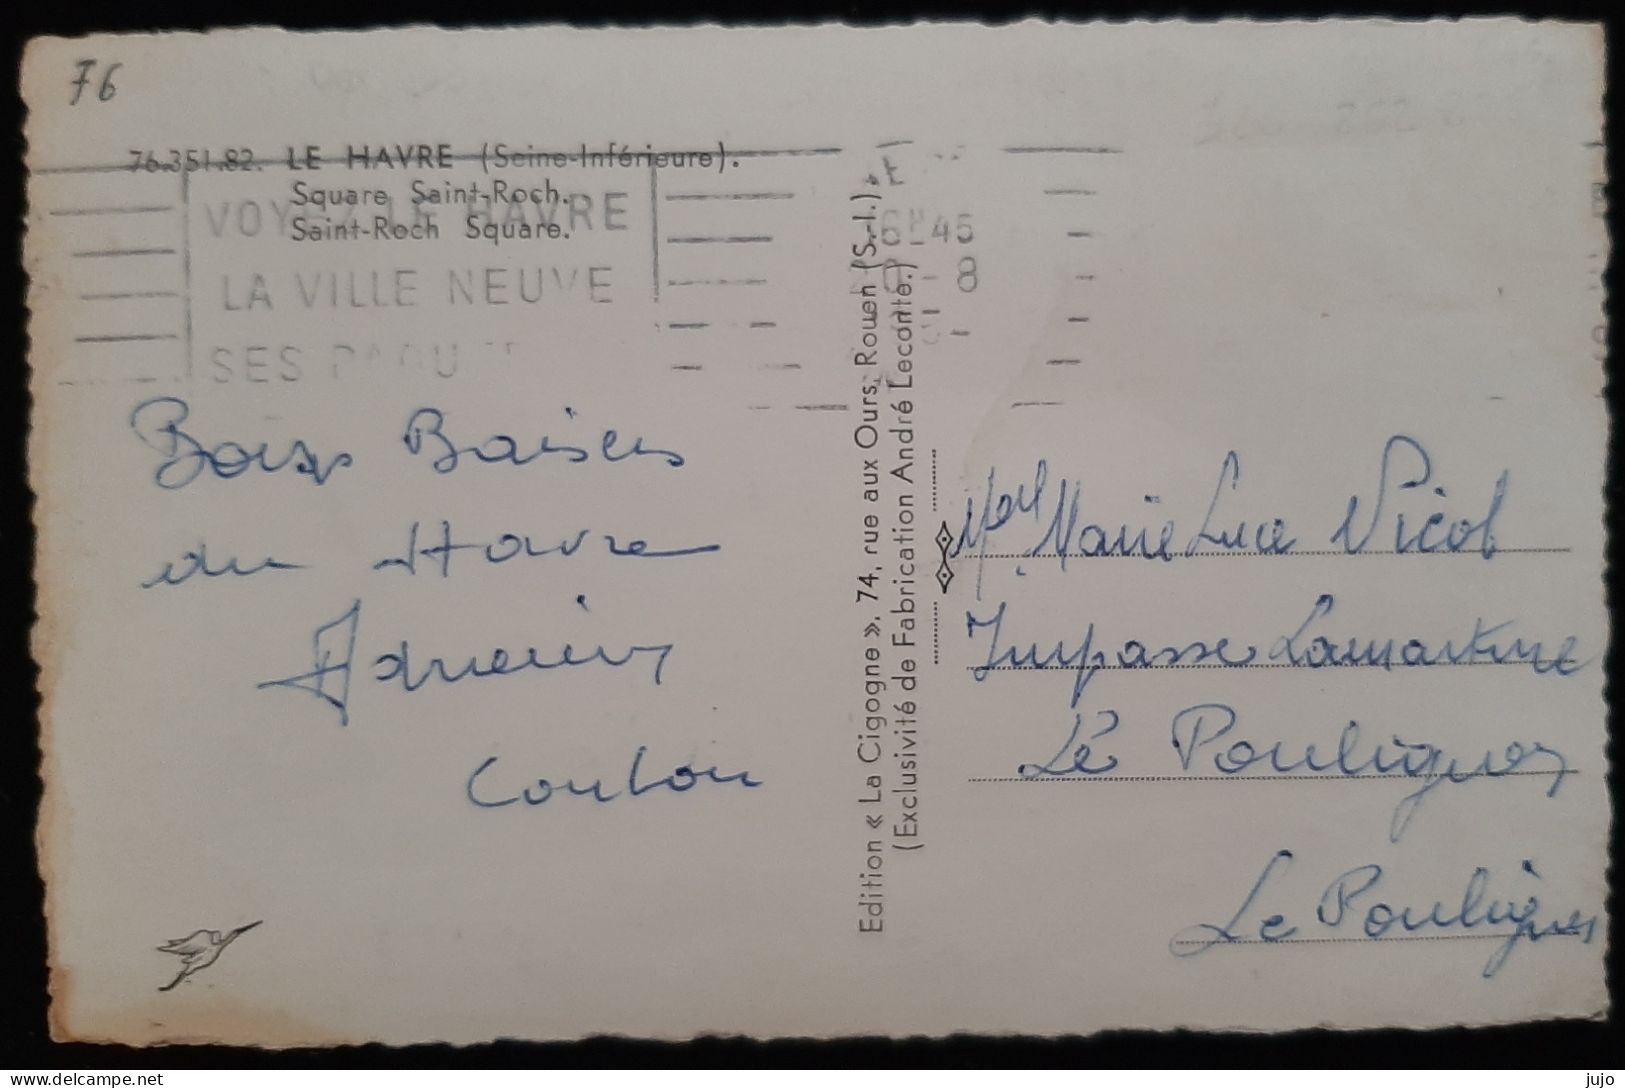 76
76.351.82. LE HAVRE (Seine-Inférieure).
Square Saint-Roch.
Saint-Roch Square.
VOYEZ LE HAVRE
LA VILLE NEUVE
SES
6H45
8
Bons Baisers
du Havre
Coulon
Edition « La Cigogne », 74, rue aux Ours, Rouen (S.-I.)
(Exclusivité de Fabrication André Leconte.)
Melle Marie Luce Nicol
Impasse Lamartine
Le Pouliguen
Le Pouliguen
delcampe.net
jujo